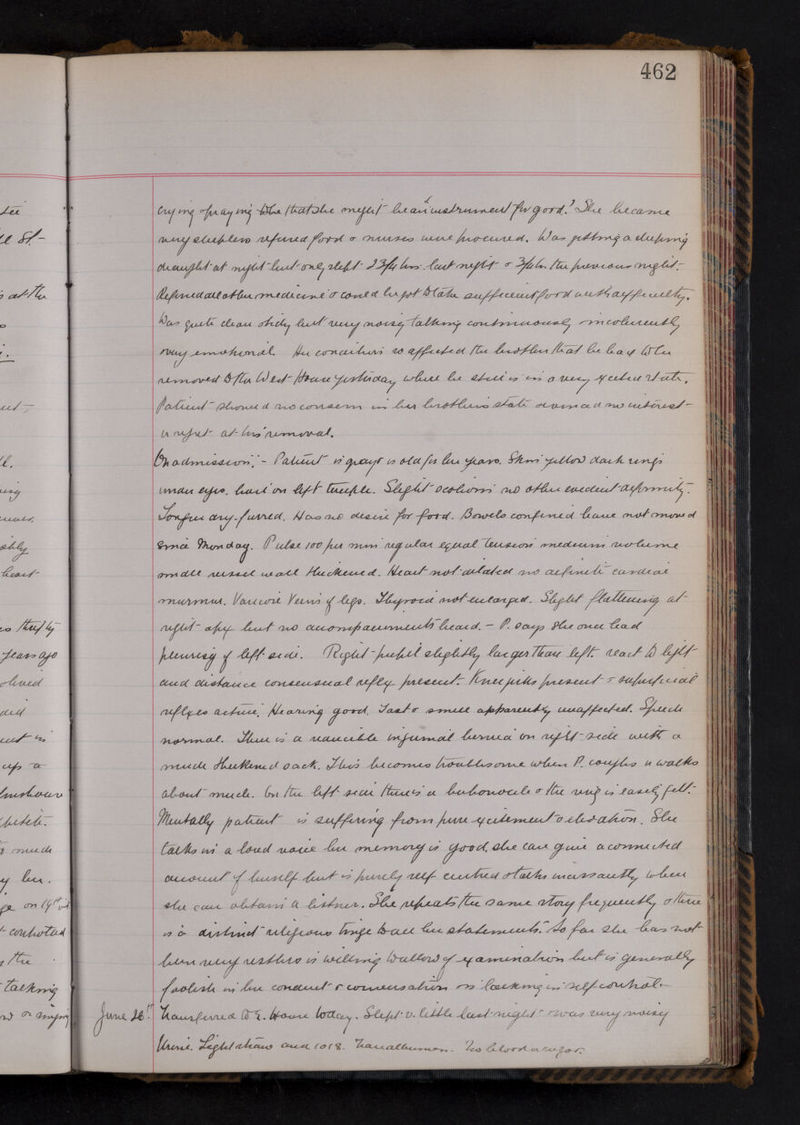 462
crying & praying to be that she might be an instrument for good." She became
very sleepless refused food & nurses were procured. Was getting a sleeping
draught at night but only slept 2 3/4 hrs. last night & 3/4 hr. the previous night.
Refused all other medicine & could be got to take sufficient food with difficulty.
Was quite clean & tidy but very noisy talking continuously & incoherently
& very emotional. Her condition so affected the brother that he had to be
removed to the West House yesterday where he still is in a very excited state.
Patient showed no concern in her brother's state evinced no interest
or regret at his removal.
On admission. - Patient is gray & is old for her years. Skin yellow dark rings
under eyes. on left temple. Slight scoliosis no other evident deformity.
Tongue dry. furred. Has no desire for food. Bowels confined have not moved
since Monday. Pulse 100 per min regular equal tension medium volume
small vessel wall thickened. Heart not dilated no definite cardiac
murmur. Varicose Veins of legs. Thyroid not enlarged. Slight flattening at
right apex but no accompaniments heard. - P. says she once had
pleurisy of left side. Right pupil slightly larger than left. react to light
and distance consensual reflex present. Knee jerks present & superficial
reflexes active. Hearing good. Taste & smell apparently unaffected. Speech
normal. There is a reducible inguinal hernia on right side with a
much thickened sack. This becomes troublesome when P. coughs or walks
about much. On the left side there is a bubonocele & the ring is easily felt.
Mentally patient is suffering from pure excitement & elevation. She
talks in a loud voice her memory is good, she can give a connected
account of herself but is purely self centred & talks incessantly when
she can obtain a listner. She repeats the same story frequently & there
is a distinct religious tinge to all her statements. So far she has not
been very restless is willing to allow of examination but is generally
foolish in her conduct & conversation & is lacking in self control.
June 26th. Transferred to E. House today. Slept v. little last night & was very noisy
Urine. Light straw acid 1018. Trace albumen. No blood or sugar.